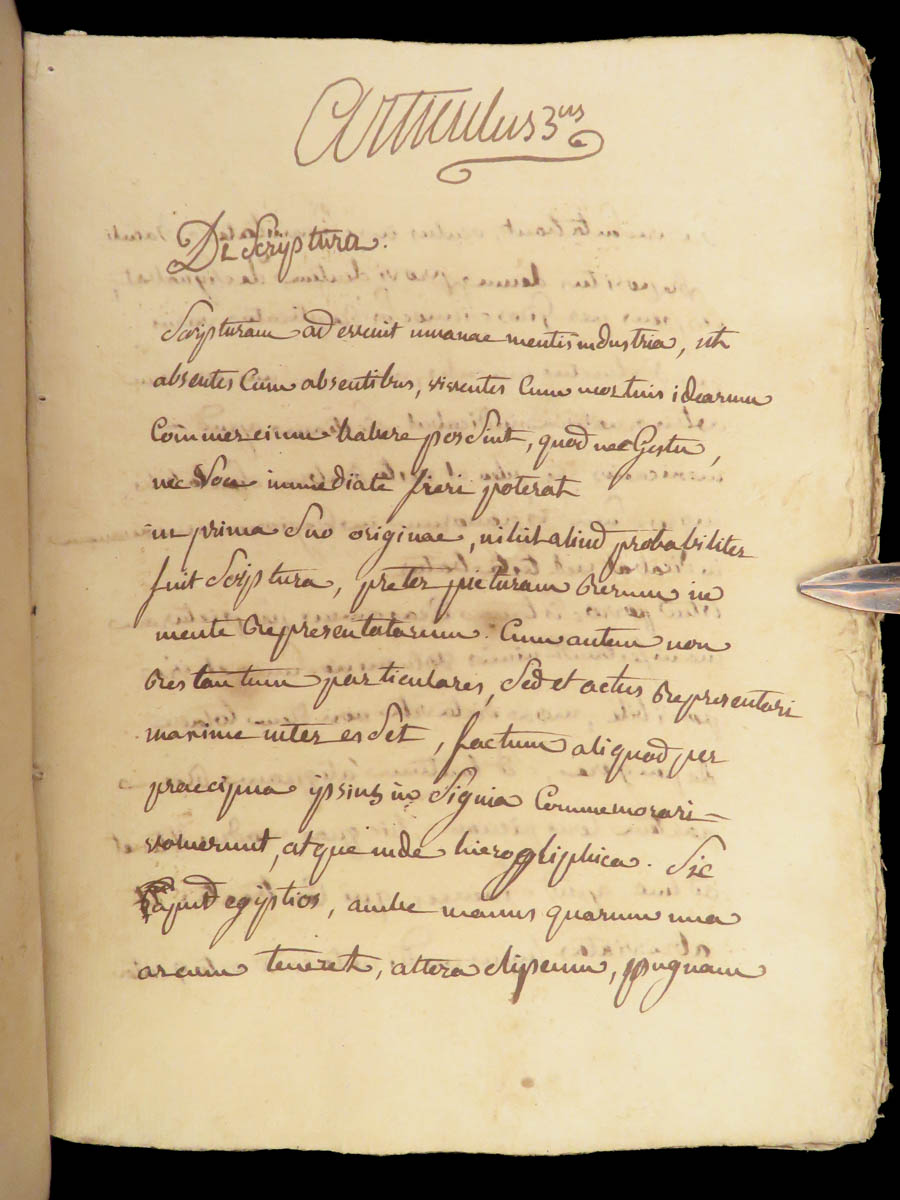 Articulus 3us
De Scriptura.
Scripturam adevenit umanae mentis industria, ut
absentes Cum absentibus, viventes Cum mortuis idearum
Commercium habere possint, quod nec Gestu,
nec Voce immediate fieri poterat
in prima Suo originae, nihil aliud probabiliter
fuit Scriptura, preter picturam rerum in
mente representatarum. Cum autem non
res tantum particulares, Sed et actus representari
maxime interesset, factum aliquod per
praecipua ipsius in Signia Commemorari
voluerunt, atque inde hierogliphica. Sic
apud egiptios, ambe manus quarum una
arcum teneret, altera clipeum, pugnam